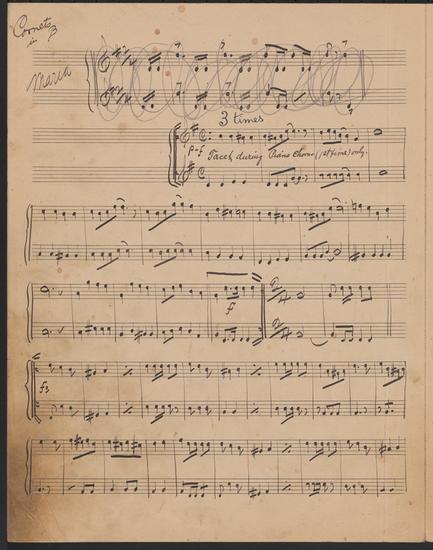 Cornets
in B
Maria
3 times
p-f Tacet during Piano Chorus (1st time) only.
f
2/4 2/4
f3